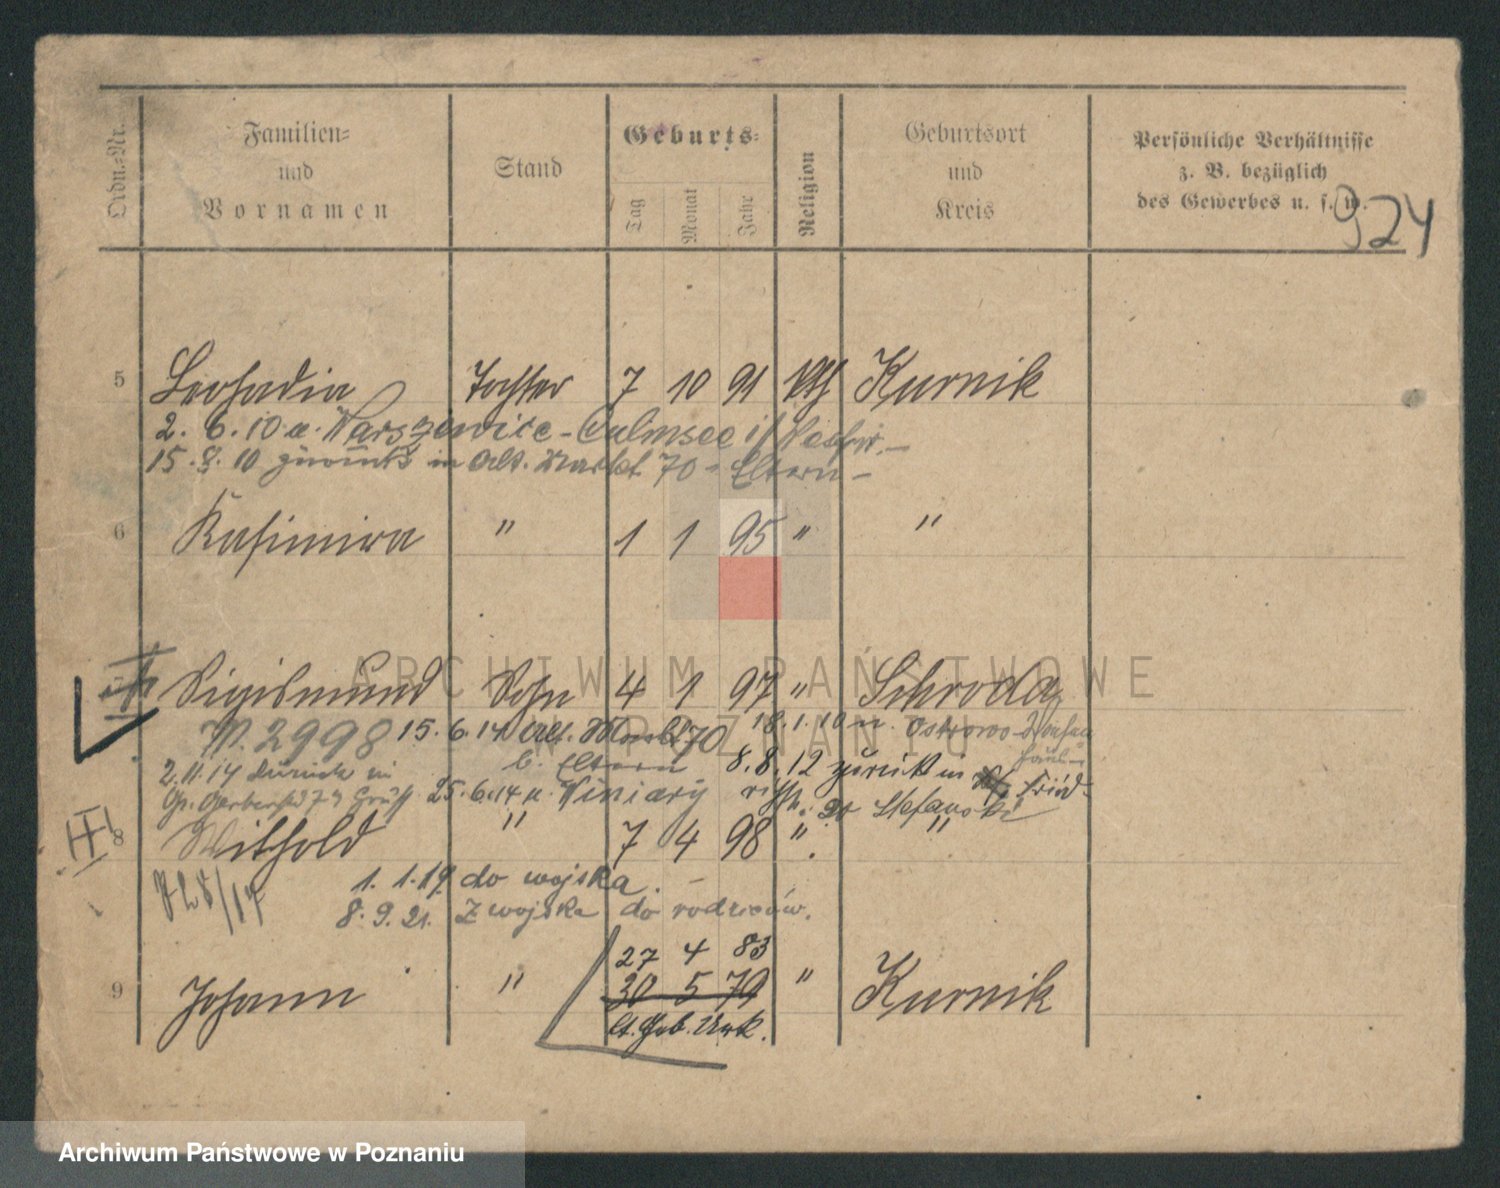 Ordn.-Nr.
Familien-
und
Vornamen
Stand
Geburts-
Tag
Monat
Jahr
Religion
Geburtsort
und
Kreis
Persönliche Verhältnisse
z. B. bezüglich
des Gewerbes u. s. w.
924
5 Leokadia Tochter 7 10 91 kth Kurnik
2. 6. 10 a. Warszewice - Culmsee i/
15. 8. 10 zurück in Alt. Markt 70 - Eltern -
6 Kasimira " 1 1 95 " "
Sigismund Sohn 4 1 97 " Schroda
W. 2998 15. 6. 14 Alt. Markt 70 18. 1. 10 n. Ostrowo
b. Eltern 8. 8. 12 zurück in
2. 11. 14 zurück in
Gr. Gerberstr 25. 6. 14 n. Winiary
Stefanski
8 Withold " 7 4 98 " "
1. 1. 19. do wojska.
8. 9. 21. Z wojska do rodziców.
27 4 83
9 Johann " 30 5 79 " Kurnik
lt. Geb. Urk.
ARCHIWUM PAŃSTWOWE
W POZNANIU
Archiwum Państwowe w Poznaniu